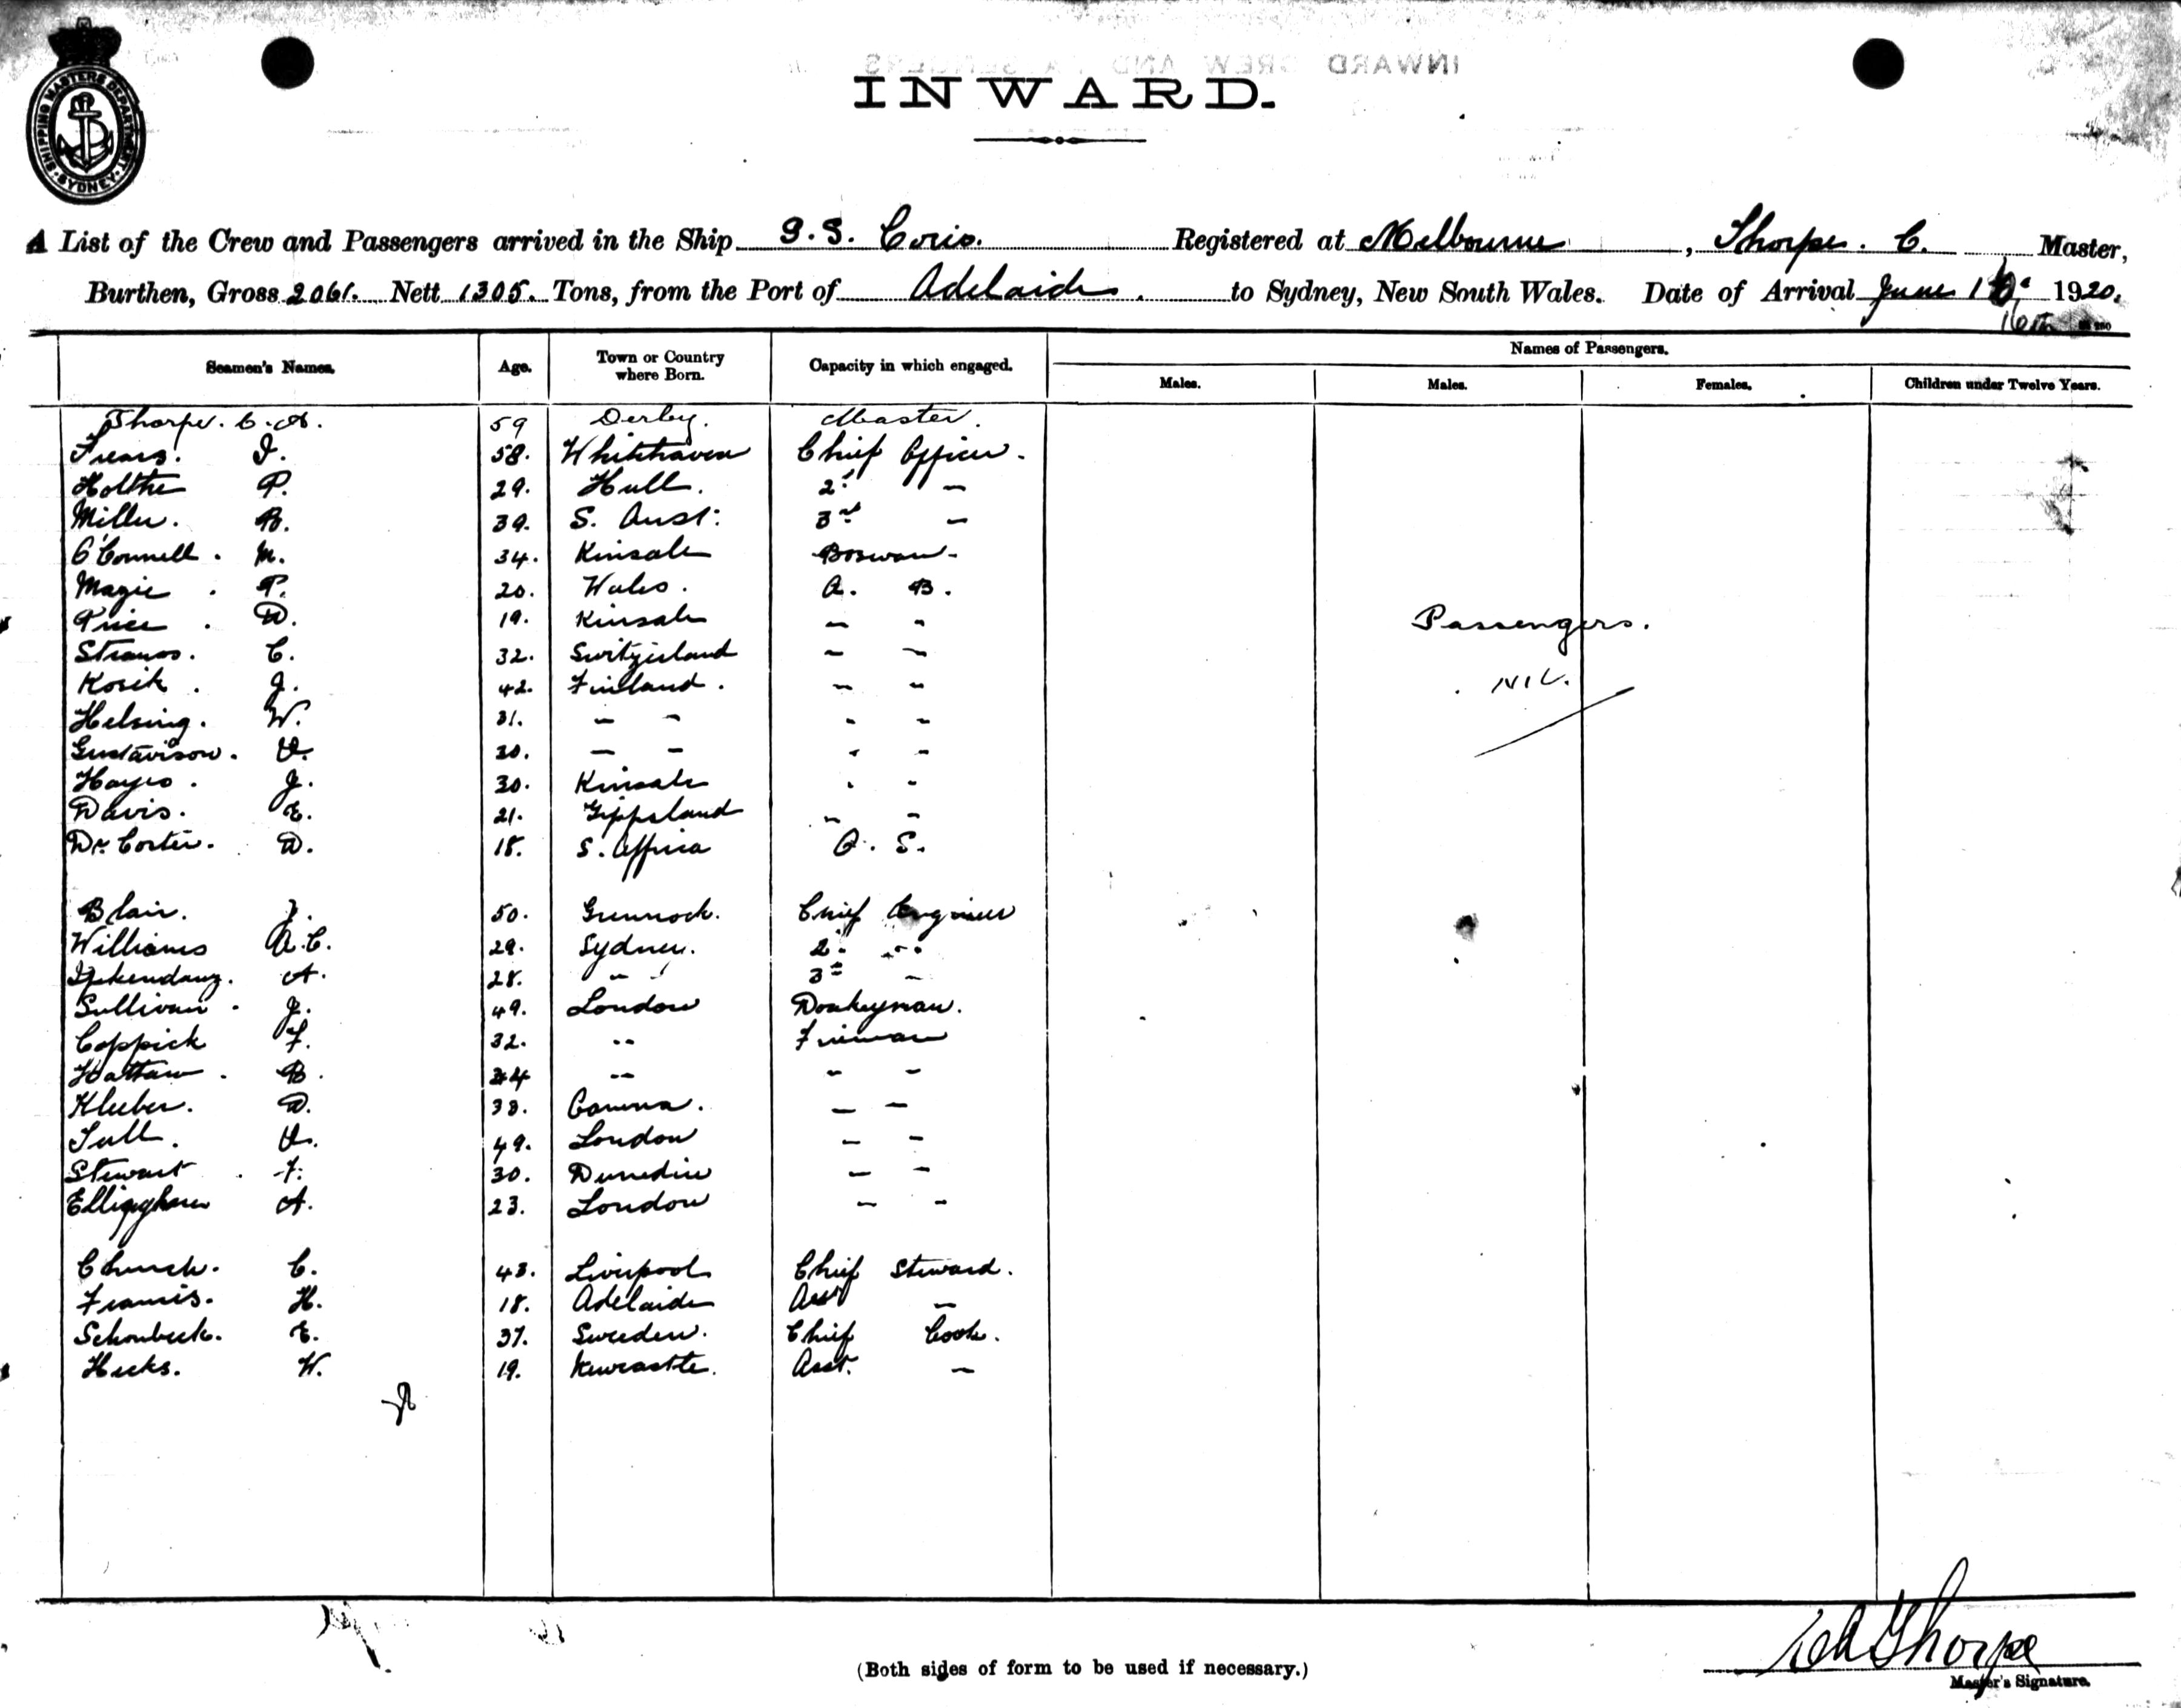 SHIPPING MASTERS DEPARTMENT SYDNEY
INWARD.
A List of the Crew and Passengers arrived in the Ship S.S. Corio. Registered at Melbourne, Thorpe. C. Master,
Burthen, Gross 2061. Nett 1305. Tons, from the Port of Adelaide. to Sydney, New South Wales. Date of Arrival June 16. 1920.
16th
Seamen's Names. Age. Town or Country where Born. Capacity in which engaged. Names of Passengers.
Males. Males. Females. Children under Twelve Years.
Thorpe. C. A. 59 Derby. Master.
J. 58. Whitehaven Chief Officer.
Holthe P. 29. Hull. 2d –
Miller. B. 39. S. Aust. 3rd –
O'Connell. M. 34. Kinsale Boswan.
Magie. P. 20. Wales. A. B.
Price. D. 19. Kinsale – –
Strauss. C. 32. Switzerland – –
Kosik. J. 42. Finland. – –
Helsing. W. 31. – – – –
Gustavison. V. 30. – – – –
Hayes. J. 30. Kinsale – –
Davis. E. 21. Gippsland – –
De Corter. D. 18. S. Affrica O. S.
Passengers.
NIL.
Blair. J. 50. Greenock. Chief Engineer
Williams A. C. 29. Sydney. 2d –
A. 28. – – 3rd –
Sullivan. J. 49. London Donkeyman.
Coppick F. 32. – – Fireman
Hattam. B. – – – –
Kleeber. D. 38. – –
Tull. V. 49. London – –
Stewart. F. 30. Dunedin – –
Ellingham A. 23. London – –
Church. C. 43. Liverpool Chief Steward.
Francis. H. 18. Adelaide Asst –
Schonbeck. E. 37. Sweden. Chief Cook.
Hicks. W. 19. Newcastle. Asst. –
(Both sides of form to be used if necessary.)
C A Thorpe
Master's Signature.